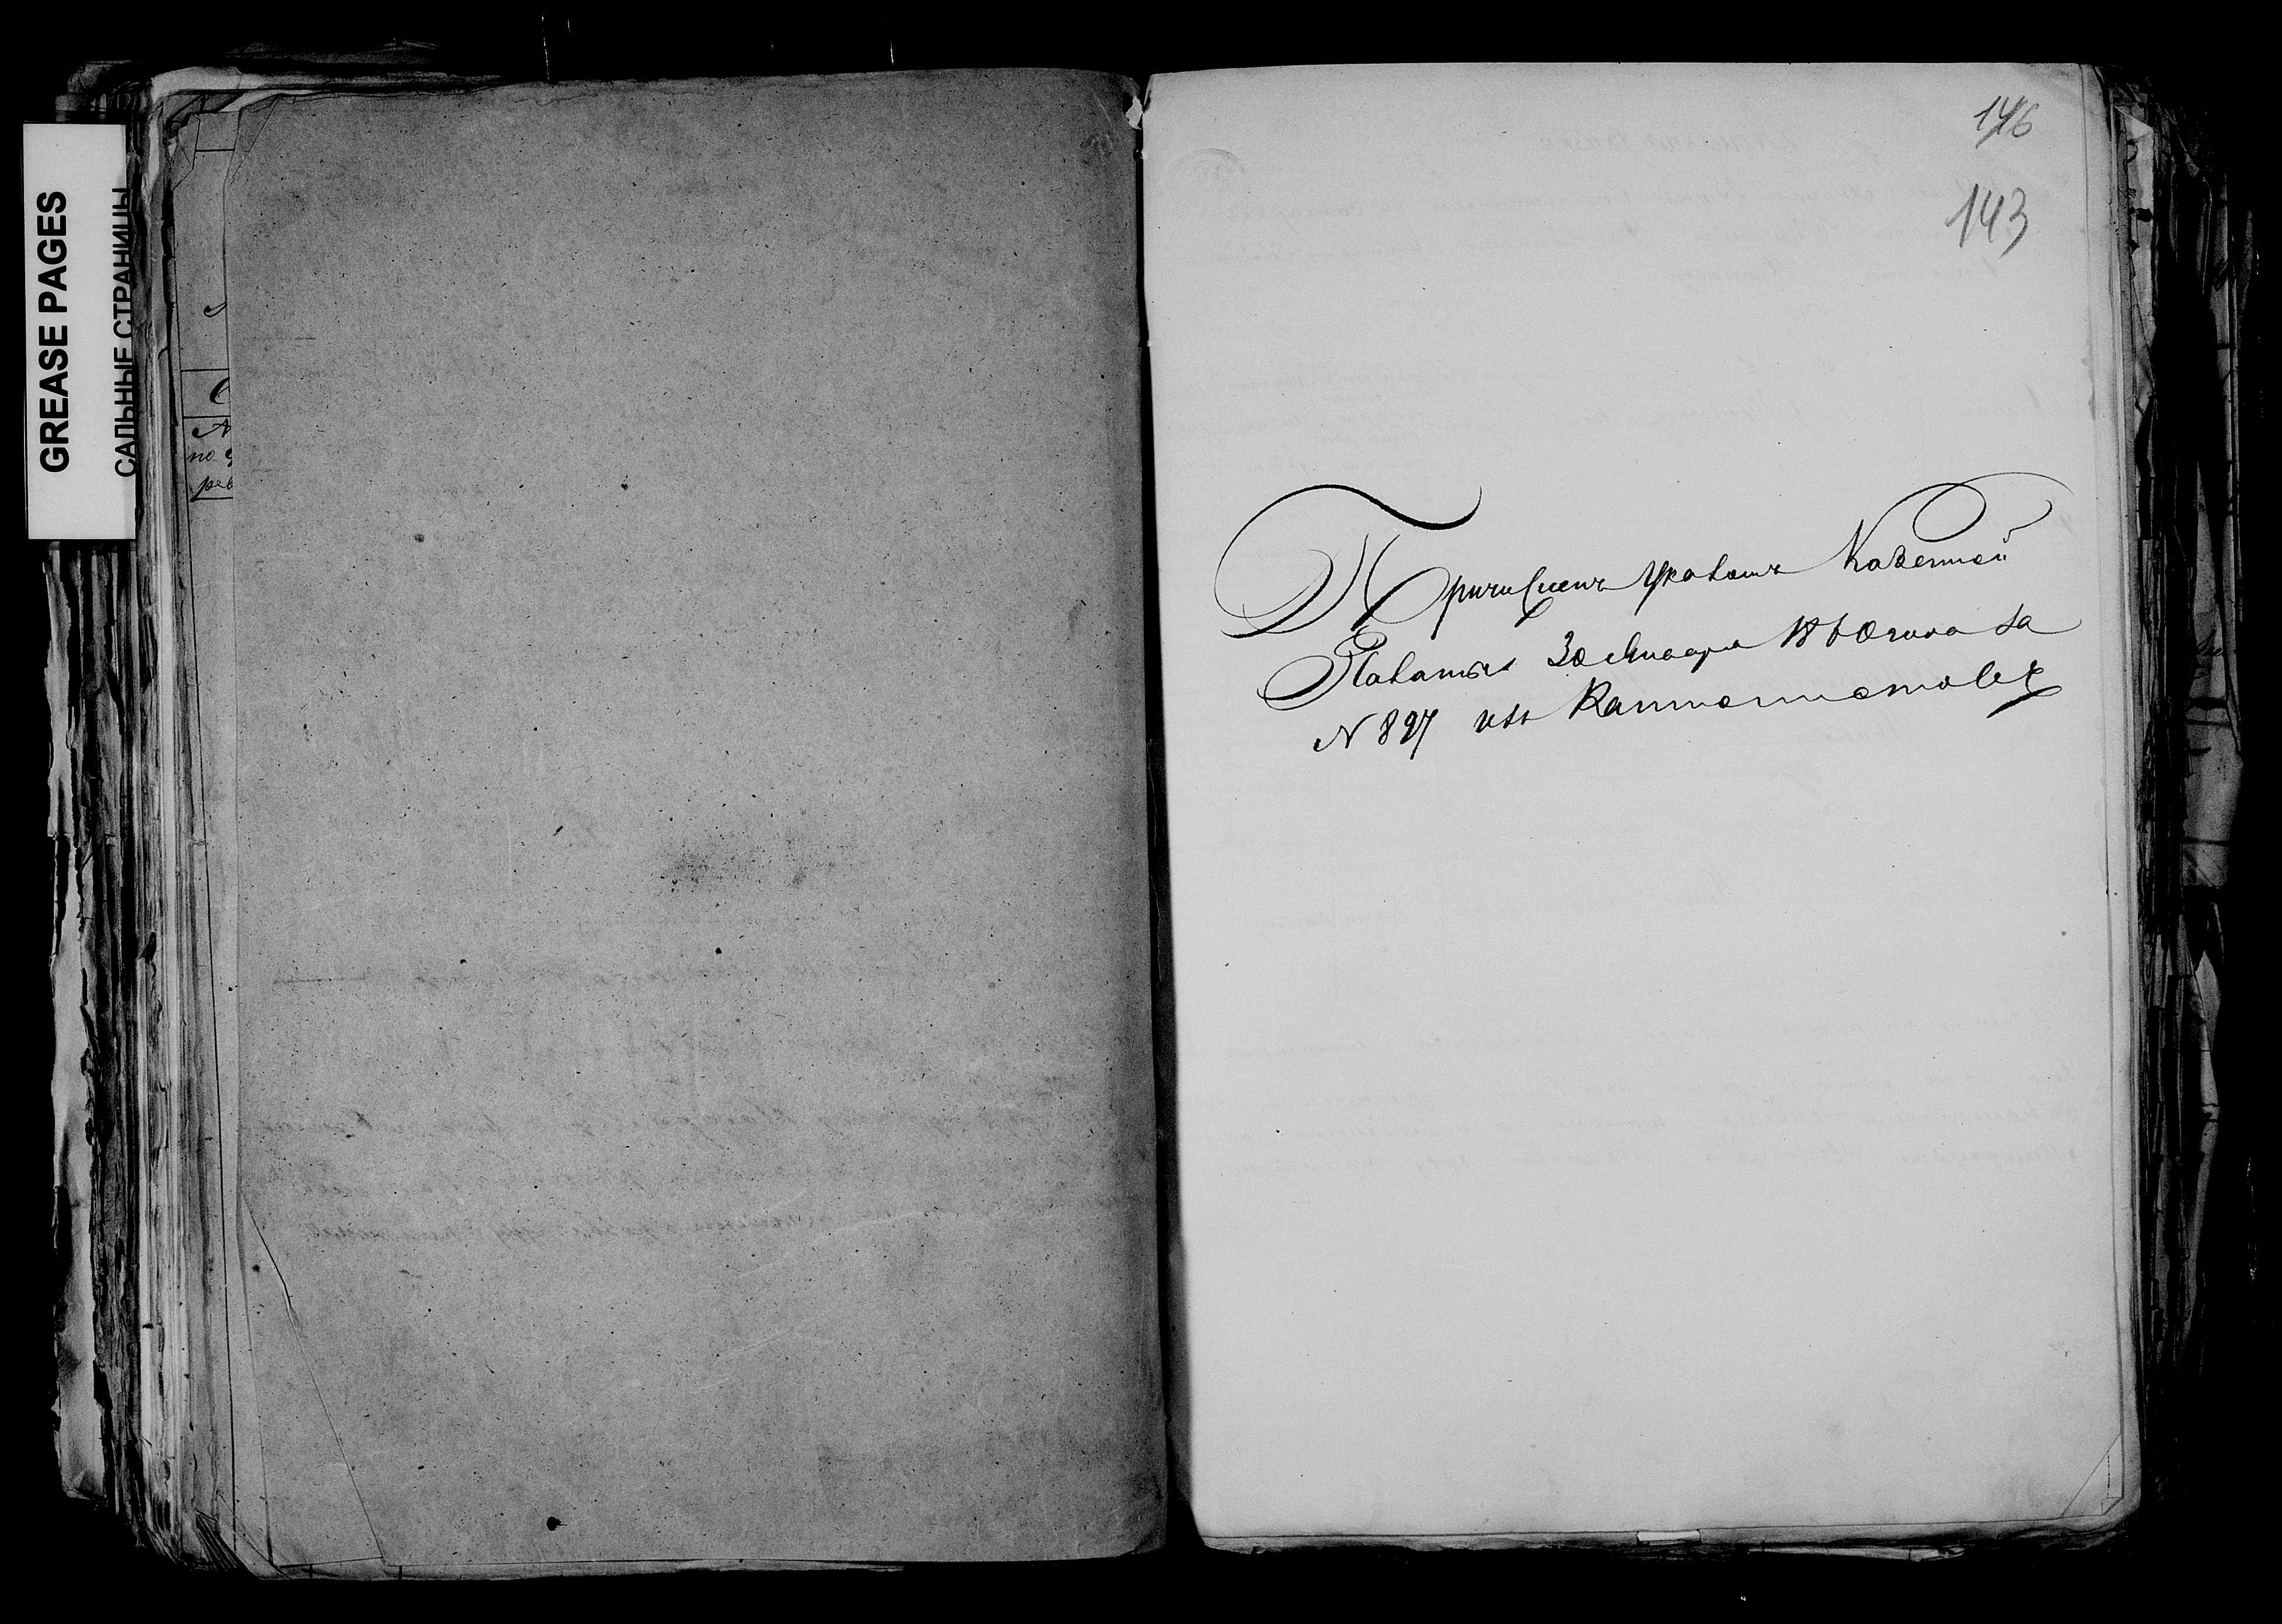 GREASE PAGES
САЛЬНЫЕ СТРАНИЦЫ
по
рев
146
143
Причисленъ Указомъ Казенной
Палаты 30 Января 1860 года за
N 897 изъ Кантонистовъ